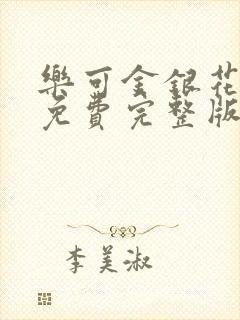 樂可金銀花
免費完整版
李美淑